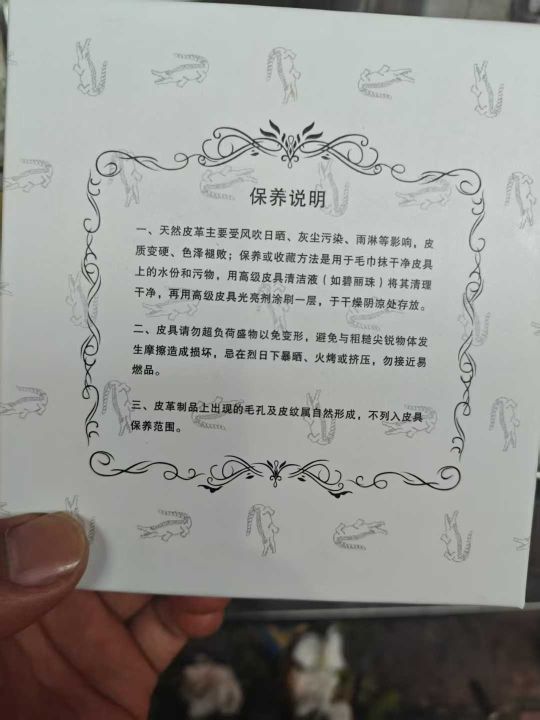 保养说明
一、天然皮革主要受风吹日晒、灰尘污染、雨淋等影响，皮
质变硬、色泽褪败；保养或收藏方法是用于毛巾抹干净皮具
上的水份和污物，用高级皮具清洁液（如碧丽珠）将其清理
干净，再用高级皮具光亮剂涂刷一层，于干燥阴凉处存放。
二、皮具请勿超负荷盛物以免变形，避免与粗糙尖锐物体发
生摩擦造成损坏，忌在烈日下暴晒、火烤或挤压，勿接近易
燃品。
三、皮革制品上出现的毛孔及皮纹属自然形成，不列入皮具
保养范围。